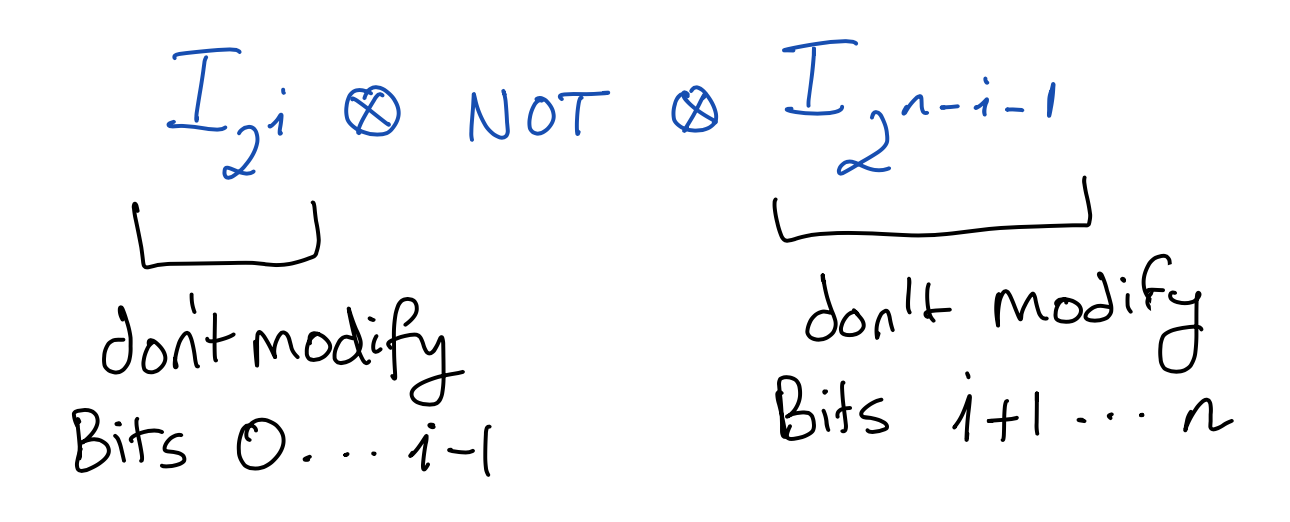 I_{2^i} ⊗ NOT ⊗ I_{2^{n-i-1}}
don't modify
Bits 0... i-1
don't modify
Bits i+1 ... n